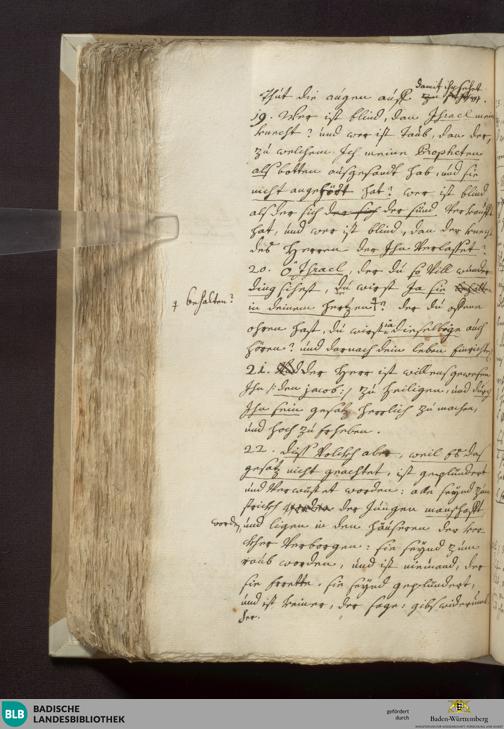 damit ihr sehet
Thut die augen auff
19. Wer ist blind, dan Jsrael mein
knecht? und wer ist taub, dan der,
zu welchem Ich meine Propheten
als botten ausgesandt hab, und sie
nicht angehört hat? wer ist blind
als der sich der sünd verkaufft
hat, und wer ist blind, dan der knecht
des Herren der Ihn verlasset?
20. O Jsrael, der du so vill wunder
ding sihest, du wirst Ja sie
‡ behalten?
in deinem hertzen‡? der du offene
ohren hast, du wirst ja dieselbige auch
hören? und darnach dein leben einrichten
21. der Herr ist willens gewesen
Ihn /: den jacob :/ zu heiligen, und durch
Ihn sein gesatz herrlich zu machen,
und hoch zu erheben.
22. diss Volckh aber, weil es des
gesatz nicht geachtet, ist geplündert
und verwüstet worden: alle seynd zum
strickh der Jungen manschafft
worden, und ligen in den häuseren der ker-
kher verborgen: sie seynd zum
raub worden, und ist niemand, der
sie errette. sie seynd geplündert,
und ist keiner, der sage: gibs widerumb
her.
BLB
BADISCHE
LANDESBIBLIOTHEK
gefördert
durch
Baden-Württemberg